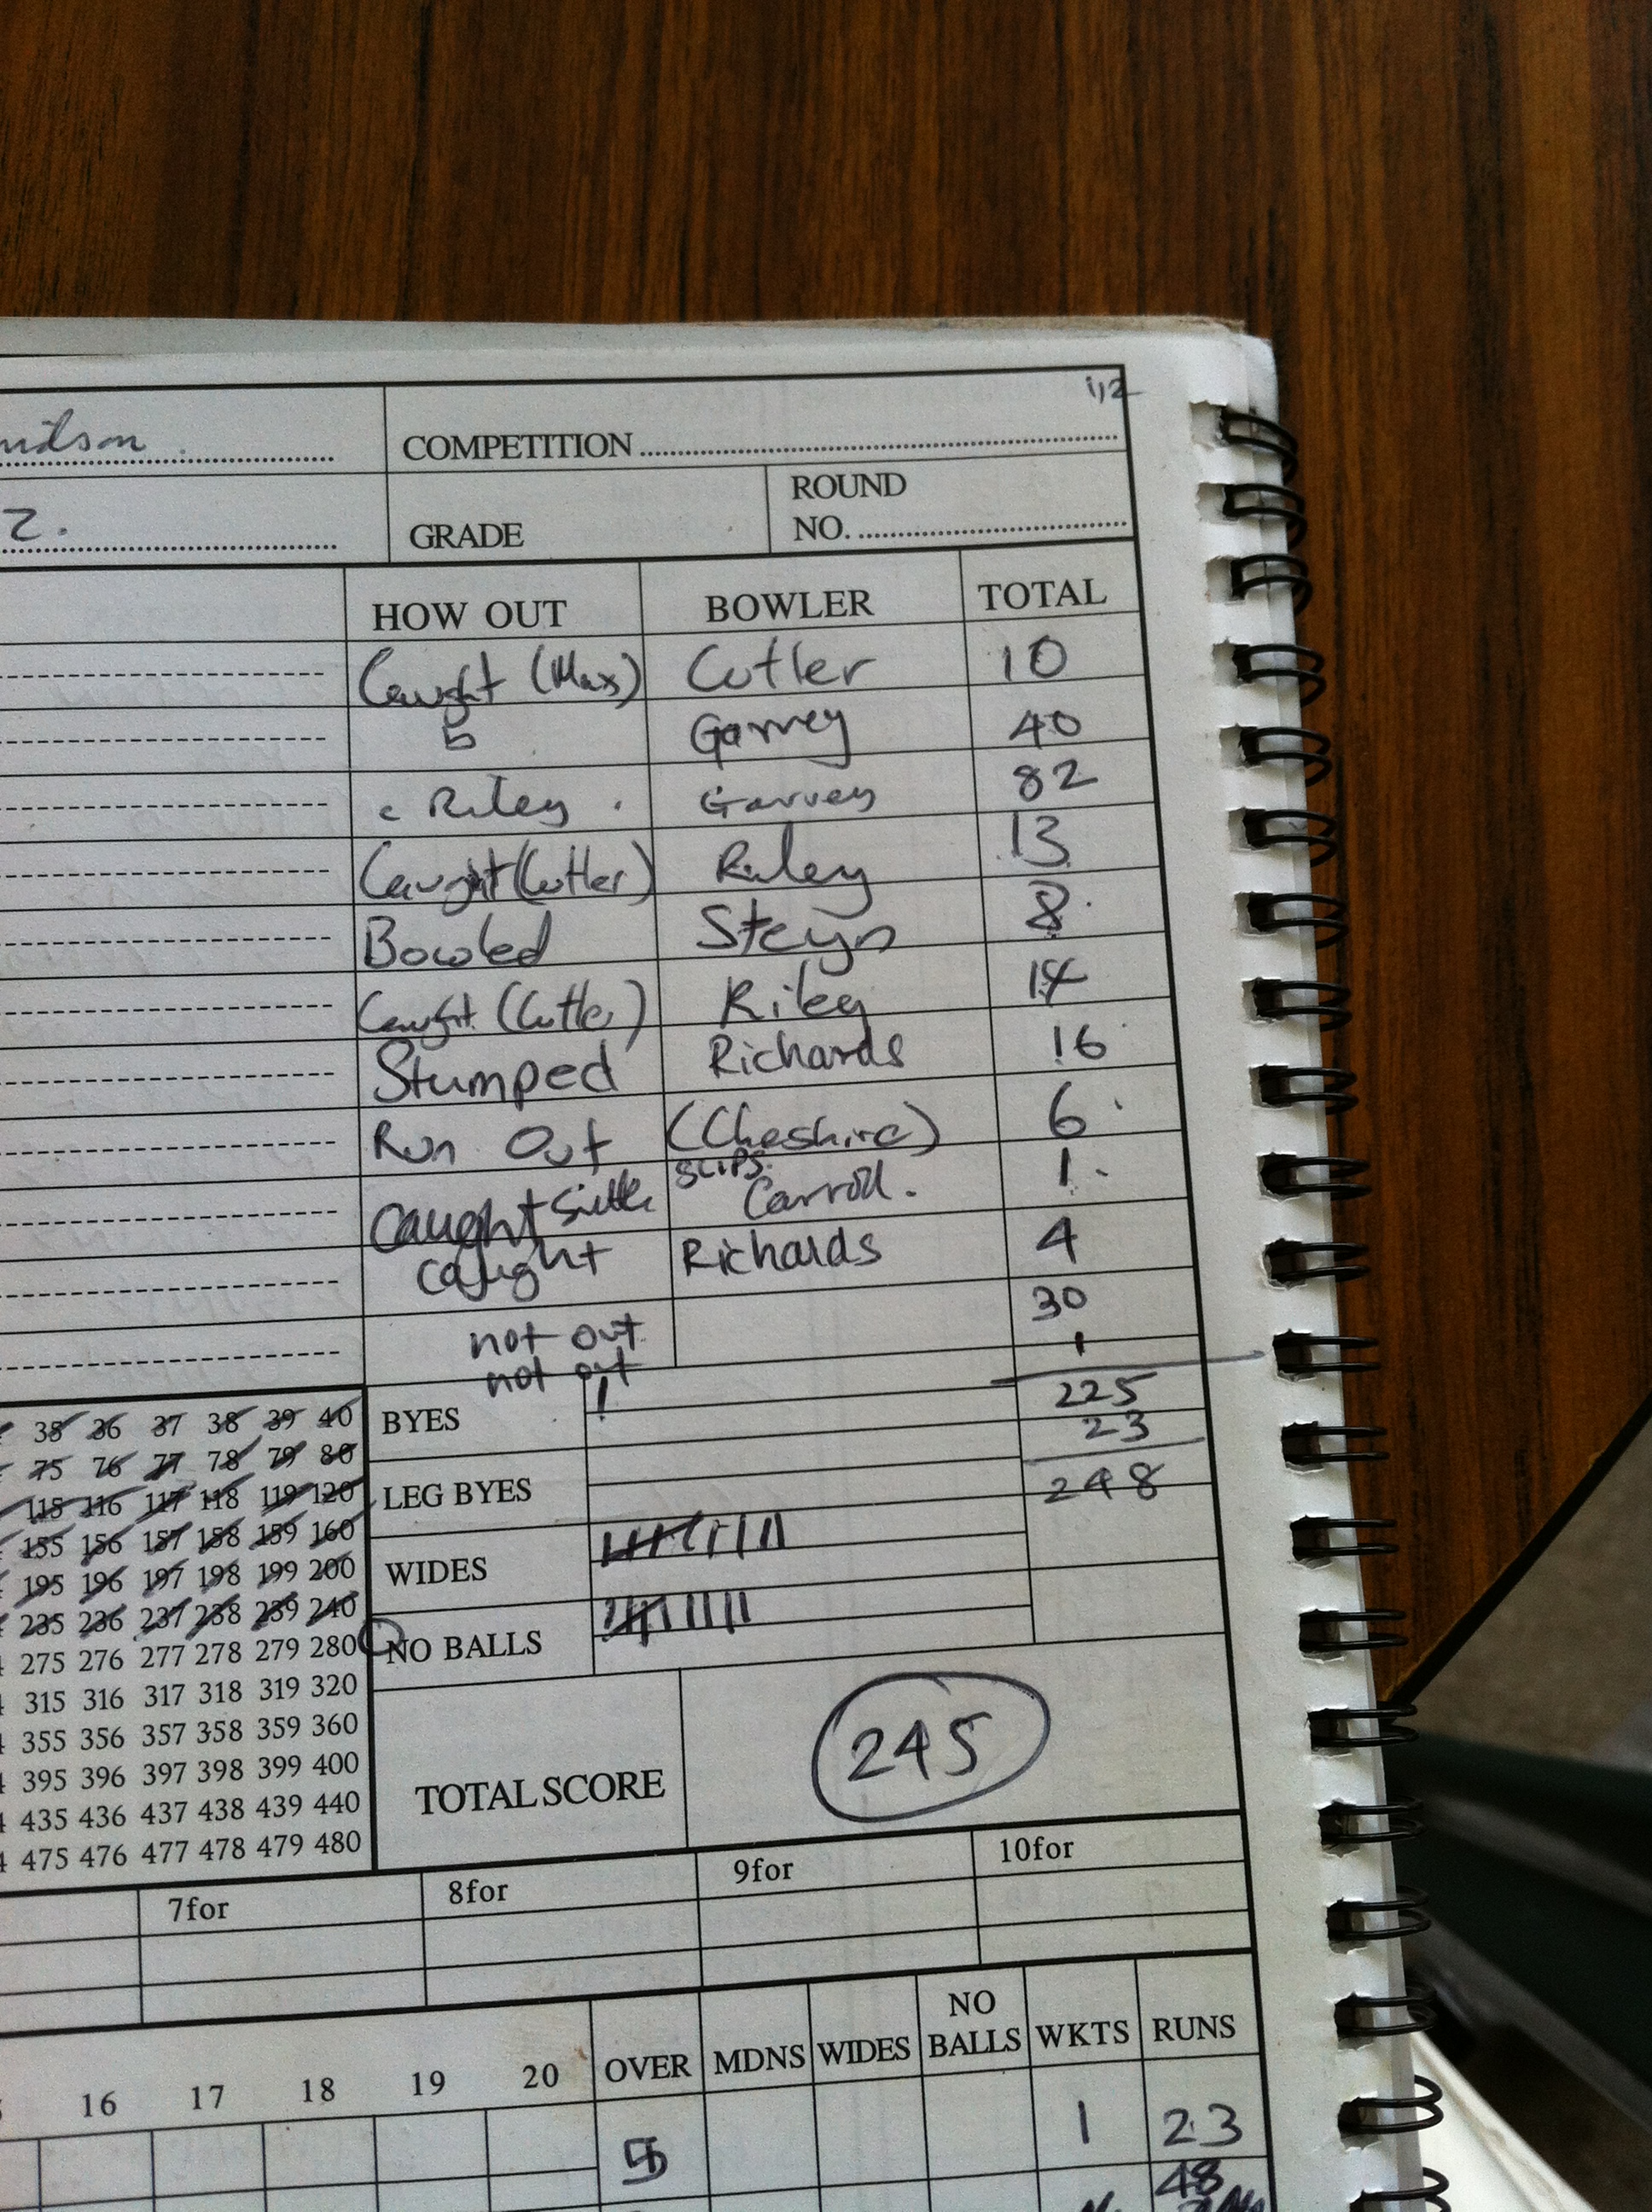 1,2
COMPETITION
2. GRADE ROUND NO.
HOW OUT BOWLER TOTAL
Caught (Max) Cutler 10
b Garvey 40
c Riley . Garvey 82
Caught (Cutler) Riley 13
Bowled Steyn 8
Caught (Cutler) Riley 14
Stumped Richards 16
Run Out (Cheshire) 6
Caught SLIPS Carroll. 1
caught Richards 4
not out 30
not out 1
35 36 37 38 39 40 BYES 225
75 76 77 78 79 80 23
115 116 117 118 119 120 LEG BYES 248
155 156 157 158 159 160
195 196 197 198 199 200 WIDES
235 236 237 238 239 240
275 276 277 278 279 280 NO BALLS
315 316 317 318 319 320
355 356 357 358 359 360 245
395 396 397 398 399 400 TOTAL SCORE
435 436 437 438 439 440
475 476 477 478 479 480
7for 8for 9for 10for
16 17 18 19 20 OVER MDNS WIDES NO BALLS WKTS RUNS
5 1 23
48